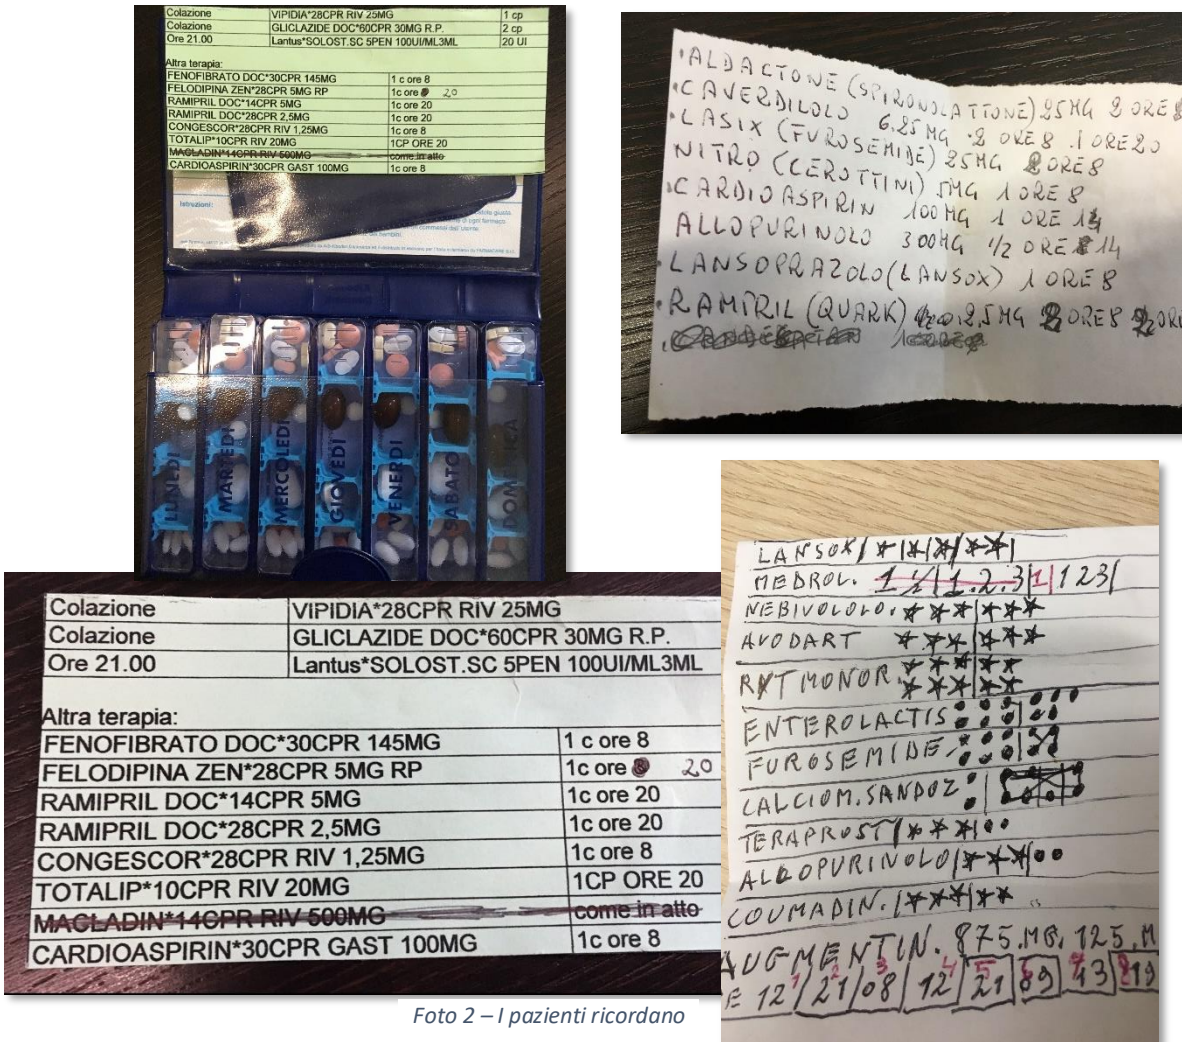 Colazione VIPIDIA*28CPR RIV 25MG 1 cp
Colazione GLICLAZIDE DOC*60CPR 30MG R.P. 2 cp
Ore 21.00 Lantus*SOLOST.SC 5PEN 100UI/ML3ML 20 UI
Altra terapia:
FENOFIBRATO DOC*30CPR 145MG 1 c ore 8
FELODIPINA ZEN*28CPR 5MG RP 1c ore 20
RAMIPRIL DOC*14CPR 5MG 1c ore 20
RAMIPRIL DOC*28CPR 2,5MG 1c ore 20
CONGESCOR*28CPR RIV 1,25MG 1c ore 8
TOTALIP*10CPR RIV 20MG 1CP ORE 20
MACLADIN*14CPR RIV 500MG come in atto
CARDIOASPIRIN*30CPR GAST 100MG 1c ore 8
Istruzioni:
LUNEDI
MARTEDI
MERCOLEDI
GIOVEDI
VENERDI
SABATO
DOMENICA
ALDACTONE (SPIRONOLATTONE) 25MG 2 ORE 8
CAVERDILOLO 6.25 MG 2 ORE 8 1 ORE 20
LASIX (FUROSEMIDE) 25MG 2 ORE 8
NITRO (CEROTTINI) 5MG 1 ORE 8
CARDIOASPIRIN 100MG 1 ORE 14
ALLOPURINOLO 300MG 1/2 ORE 14
LANSOPRAZOLO (LANSOX) 1 ORE 8
RAMIPRIL (QUARK) 2,5MG 2 ORE 8
Colazione VIPIDIA*28CPR RIV 25MG
Colazione GLICLAZIDE DOC*60CPR 30MG R.P.
Ore 21.00 Lantus*SOLOST.SC 5PEN 100UI/ML3ML
Altra terapia:
FENOFIBRATO DOC*30CPR 145MG 1 c ore 8
FELODIPINA ZEN*28CPR 5MG RP 1c ore 20
RAMIPRIL DOC*14CPR 5MG 1c ore 20
RAMIPRIL DOC*28CPR 2,5MG 1c ore 20
CONGESCOR*28CPR RIV 1,25MG 1c ore 8
TOTALIP*10CPR RIV 20MG 1CP ORE 20
MACLADIN*14CPR RIV 500MG come in atto
CARDIOASPIRIN*30CPR GAST 100MG 1c ore 8
LANSOX
MEDROL. 1 1/2 1.2.3 1 1 2 3
NEBIVOLOLO.
AVODART
RYTMONOR.
ENTEROLACTIS
FUROSEMIDE
CALCIOM.SANDOZ
TERAPROST
ALLOPURINOLO
COUMADIN.
AUGMENTIN. 875.MG. 125.M
E 12 21 08 12 21 09 13 19
1 2 3 4 5 6 7 8
Foto 2 – I pazienti ricordano